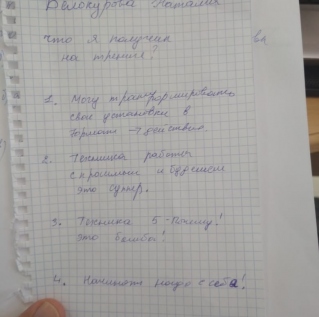 Белокурова Наталия
Что я получил
на тренинге?
1. Могу трансформировать
свои установки в
формат → действия.
2. Техника работы
с прошлым и будущим
это супер.
3. Техника 5 - Почему!
это бомба!
4. Начинать надо с себя!